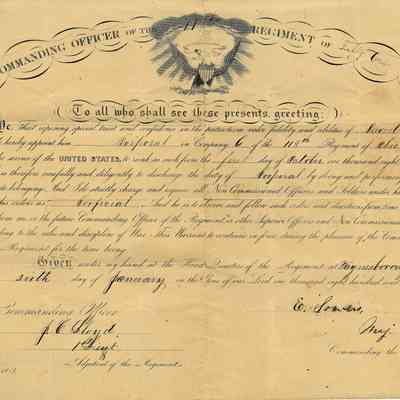 COMMANDING OFFICER OF THE REGIMENT OF
To all who shall see these presents, greeting:
That reposing special trust and confidence in the patriotism, valor, fidelity and abilities of
hereby appoint him Corporal in Company G of the 118th Regiment of Ohio
the service of the UNITED STATES, to rank as such from the first day of October one thousand eight
is therefore carefully and diligently to discharge the duty of Corporal by doing and performing
belonging. And I do strictly charge and require all Non-Commissioned Officers and Soldiers under his
his orders as Corporal. And he is to observe and follow such orders and directions from time
from me, or the future Commanding Officer of the Regiment, or other Superior Officers and Non-Commissioned
ding to the rules and discipline of War. This Warrant to continue in force during the pleasure of the Comm
Regiment for the time being.
Given under my hand at the Head Quarters of the Regiment, at
sixth day of January in the Year of our Lord one thousand eight hundred
Commanding Officer
E.
J. C. Lloyd
Maj
1 Lieut
Commanding the
Adjutant of the Regiment.